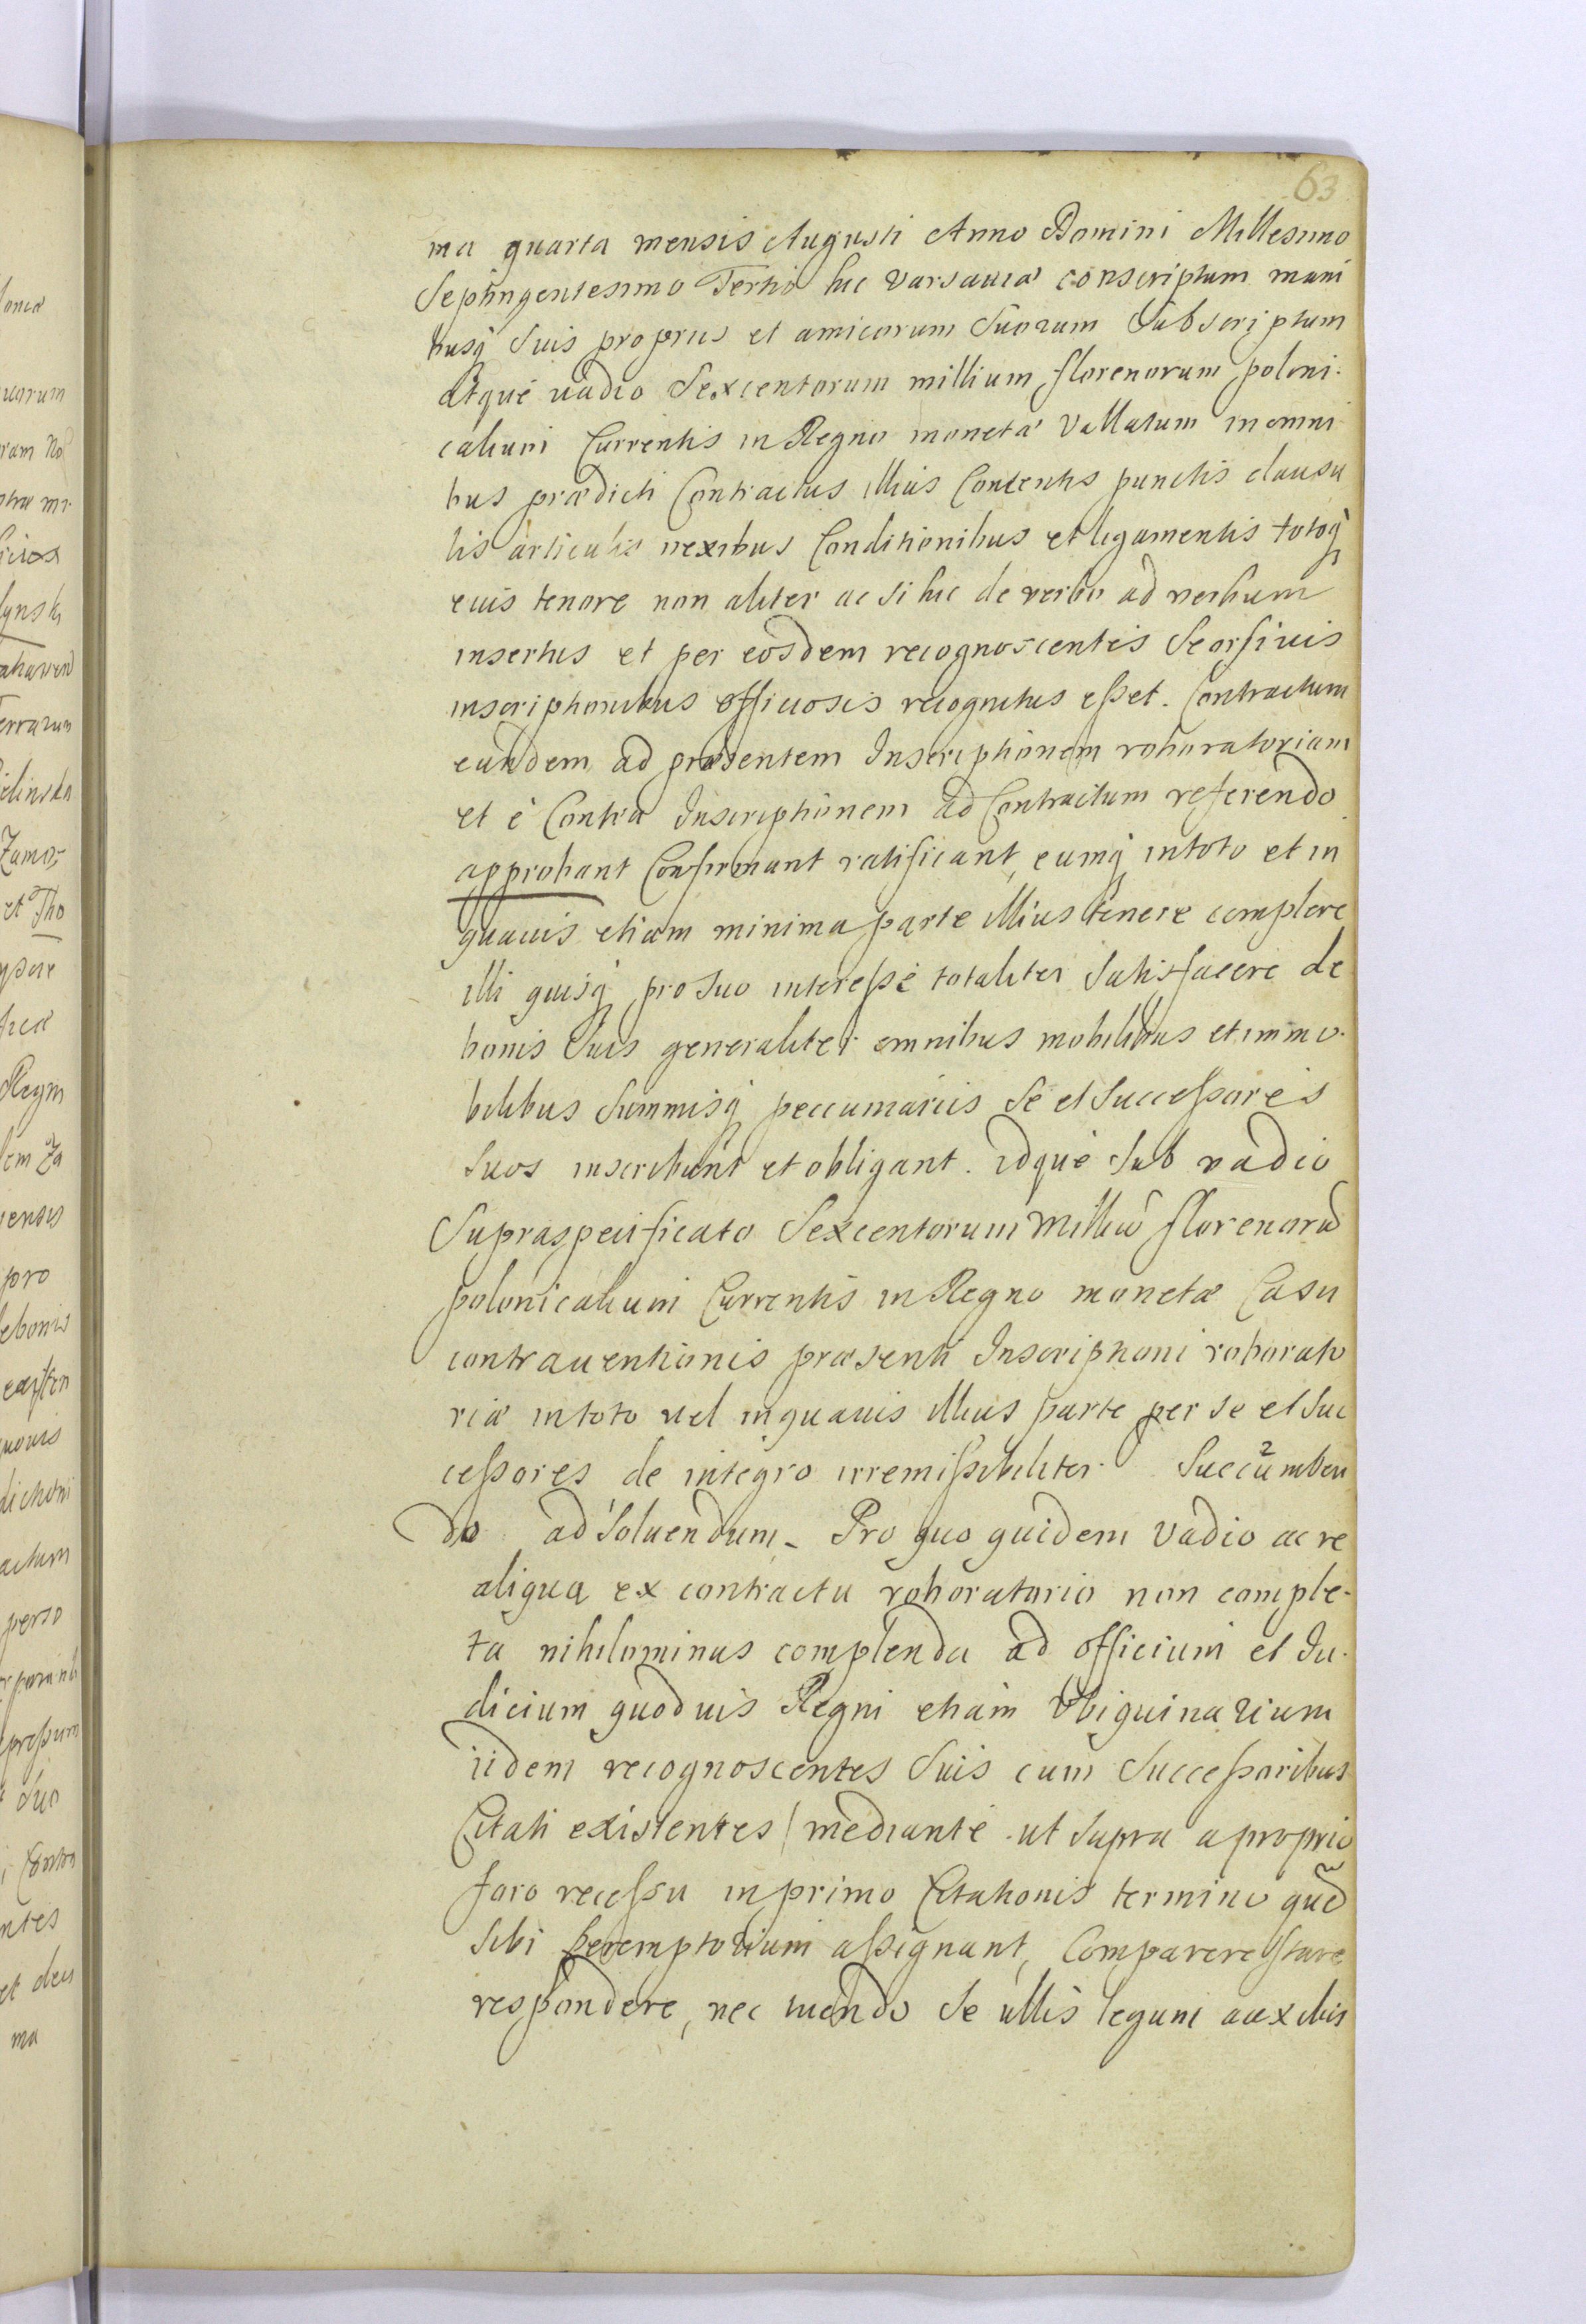 63
ma quarta mensis Augusti Anno Domini Millesimo
Septingentesimo Tertio hic Varsauiæ conscriptum mani
busq́ Suis proprÿs et amicorum Suorum Subscriptum
atque uadio Sexcentorum millium florenorum poloni-
calium Currentis in Regno monetæ Vallatum in omni
bus prædicti Contractus illius Contentis punctis clausu
lis articulis nexibus Conditionibus et ligamentis totoq́
euis tenore non aliter ac si hic de verbo ad verbum
insertus et per eosdem recognoscentes Seorsiuis
inscriptionibus officiosis recognitus eſset. Contractum
eundem ad præsentem Inscriptionem roboratoriam
et è Contra Inscriptionem ad Contractum referendo
approbant Confirmant ratificant, eumq́ in toto et in
quauis etiam minima parte illius tenere complere
illi quisq́ pro Suo intereſse totaliter Satisfacere de
bonis Suis generaliter omnibus mobilibus et immo-
bilibus Summisq́ peccuniariis Se et Succeſsores
Suos inscribunt et obligant. idque Sub vadio
Supraspecificato Sexcentorum Milliū florenorū
polonicalium Currentis in Regno monetæ Casu
contrauentionis præsenti Inscriptioni roborato
riæ in toto uel in quauis illius parte per se et Suc
ceſsores de integro irremiſsibiliter Succumben
do ad Soluendum - Pro quo quidem Vadio ac re
aliqua ex contractu roboratorio non comple-
ta nihilominus complenda ad officium et Iu-
dicium quoduis Regni etiam Vbiquinarium
iidem recognoscentes Suis cum Succeſsoribus
Citati existentes / mediante ut Supra a proprio
foro receſsu in primo Citationis termino quē
Sibi peremptorium aſsignant, Comparere Stare
respondere, nec iuendo Se ullis legum auxiliis